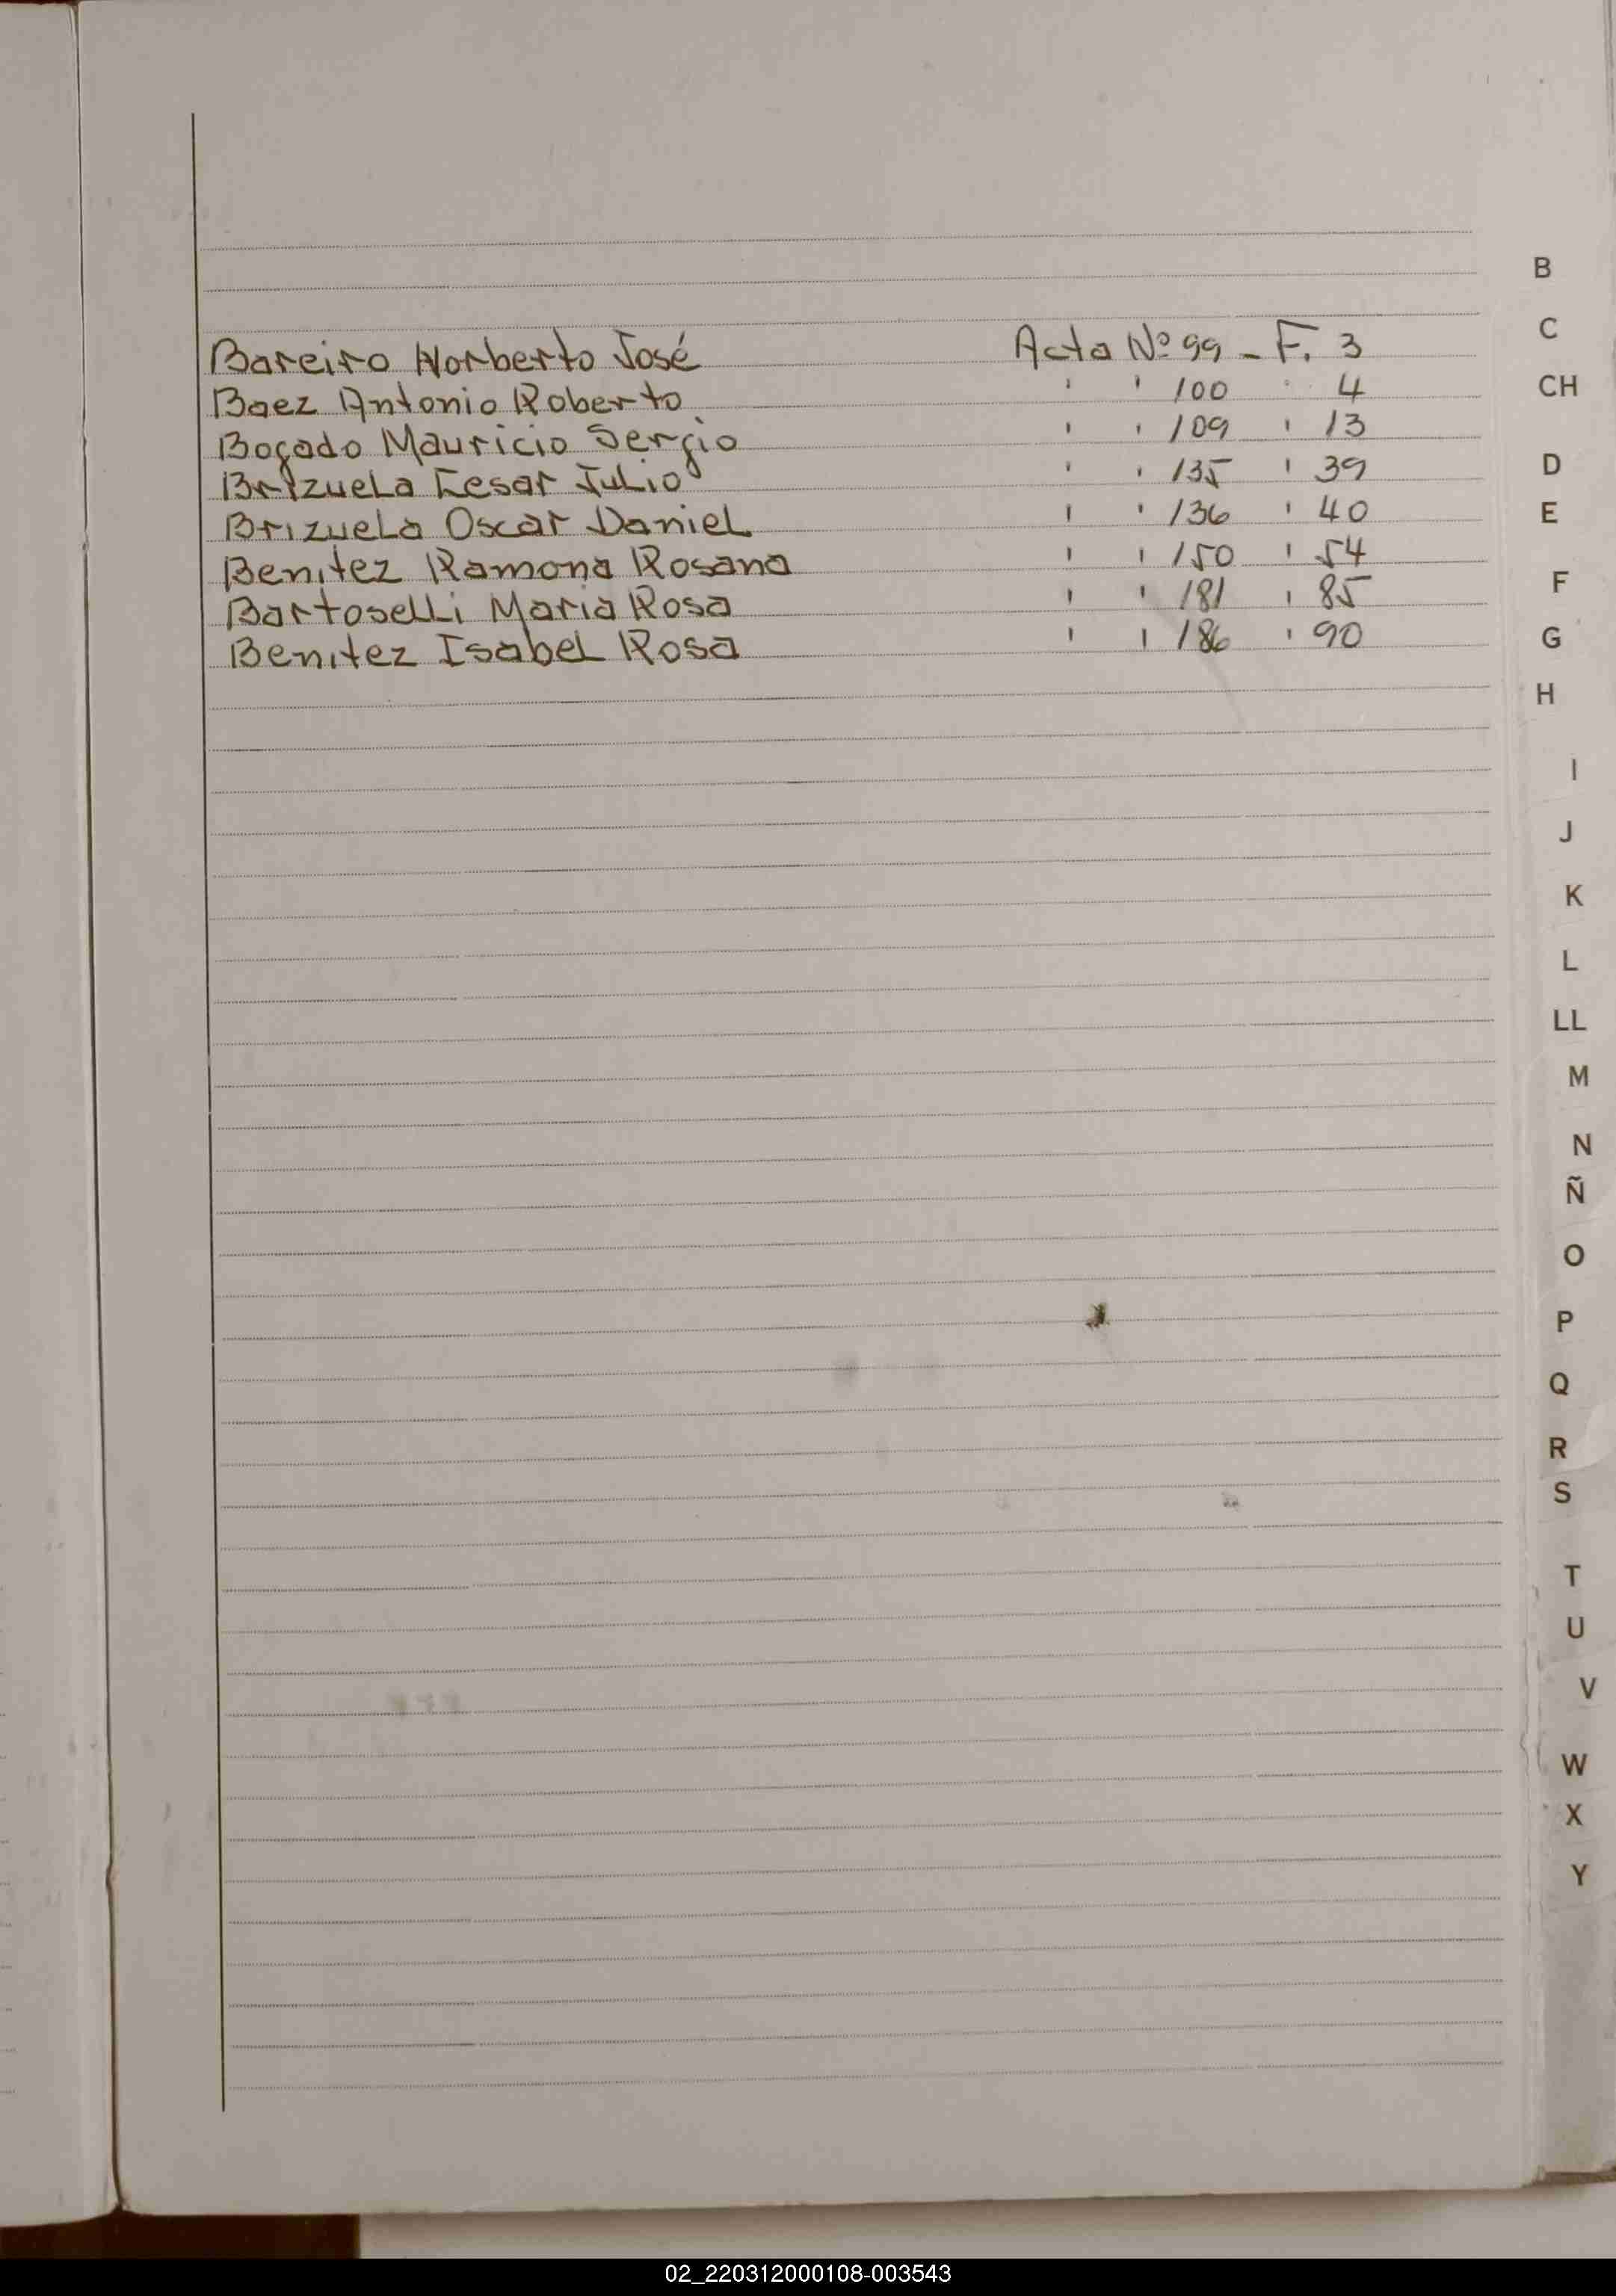 Bareiro Norberto José Acta Nº 99 - F. 3
Baez Antonio Roberto ' ' 100 ' 4
Bogado Mauricio Sergio ' ' 109 ' 13
Brizuela Cesar Julio ' ' 135 ' 39
Brizuela Oscar Daniel ' ' 136 ' 40
Benitez Ramona Rosana ' ' 150 ' 54
Bartoselli Maria Rosa ' ' 181 ' 85
Benitez Isabel Rosa ' ' 186 ' 90
B
C
CH
D
E
F
G
H
I
J
K
L
LL
M
N
Ñ
O
P
Q
R
S
T
U
V
W
X
Y
02_220312000108-003543